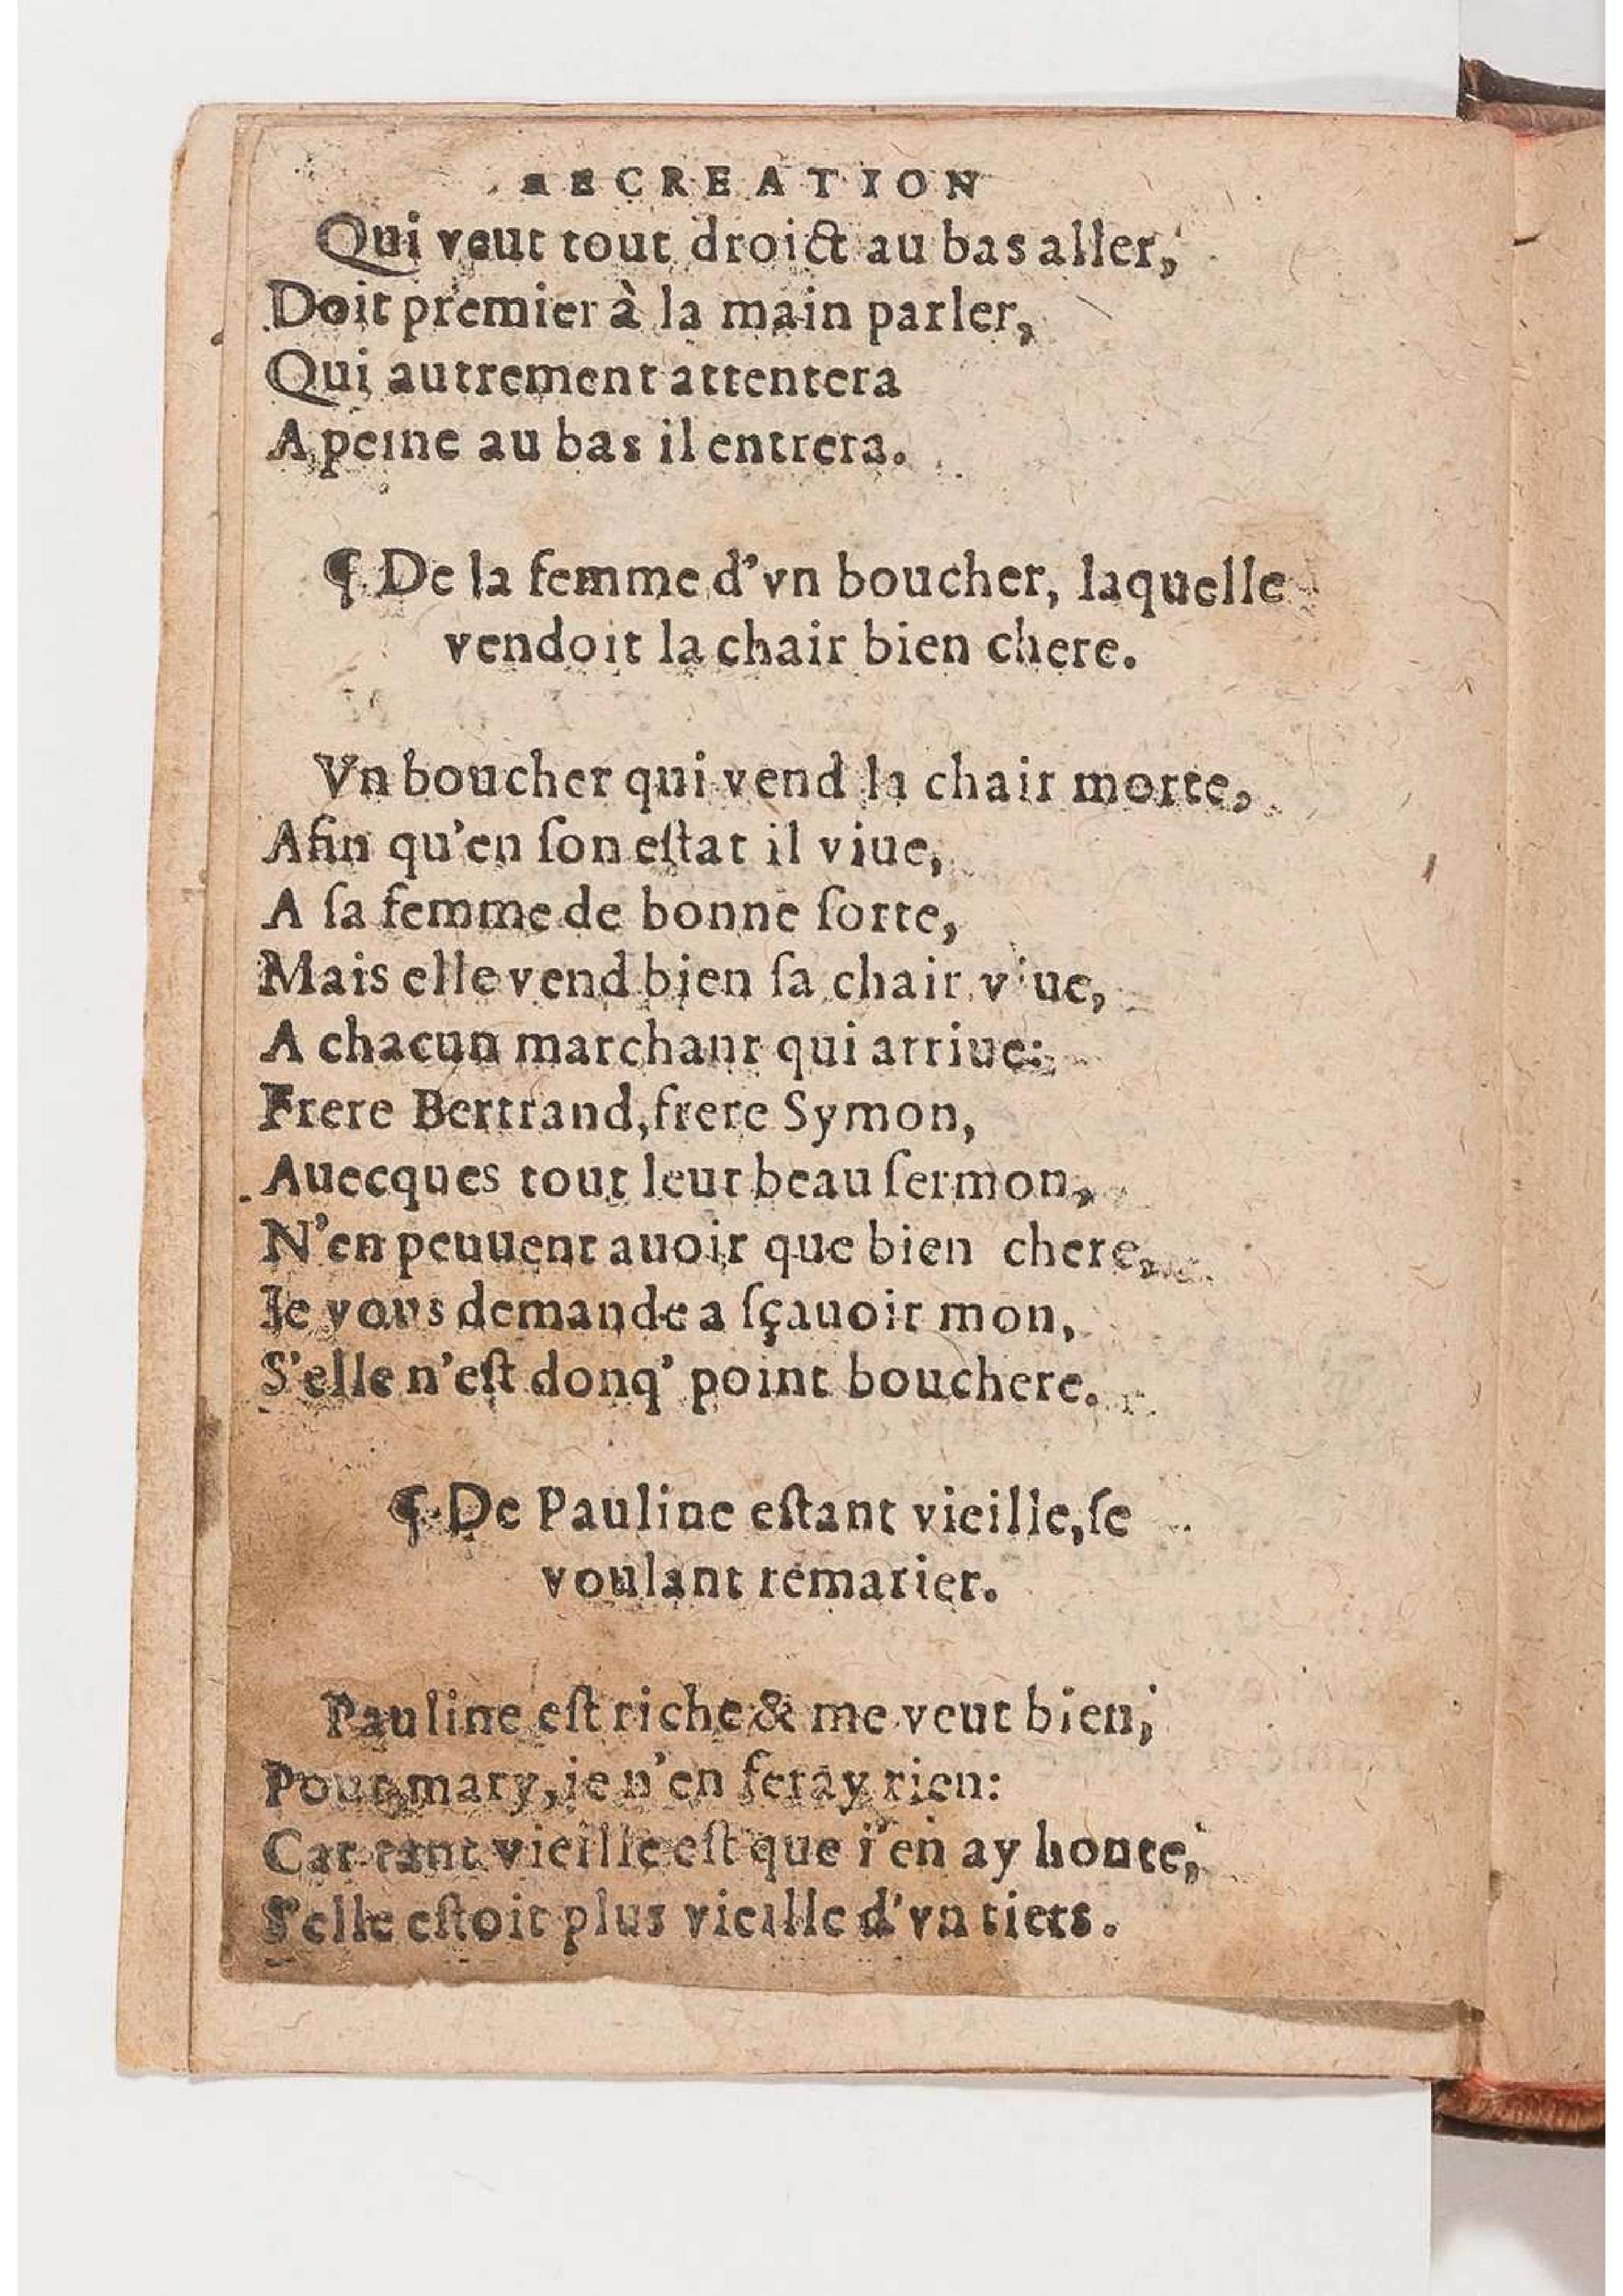 RECREATION
Qui veut tout droict au bas aller,
Doit premier à la main parler,
Qui autrement attentera
A peine au bas il entrera.
¶ De la femme d'vn boucher, laquelle
vendoit la chair bien chere.
Vn boucher qui vend la chair morte,
Afin qu'en ſon eſtat il viue,
A ſa femme de bonne ſorte,
Mais elle vend bien ſa chair viue,
A chacun marchant qui arriue:
Frere Bertrand, frere Symon,
Auecques tout leur beau ſermon,
N'en peuuent auoir que bien chere,
Ie vous demande a ſçauoir mon,
S'elle n'eſt donq' point bouchere.
¶ De Pauline eſtant vieille, ſe
voulant remarier.
Pauline eſt riche & me veut bien,
Pour mary, ie n'en feray rien:
Car tant vieille eſt que i'en ay honte,
S'elle eſtoit plus vieille d'vn tiers.